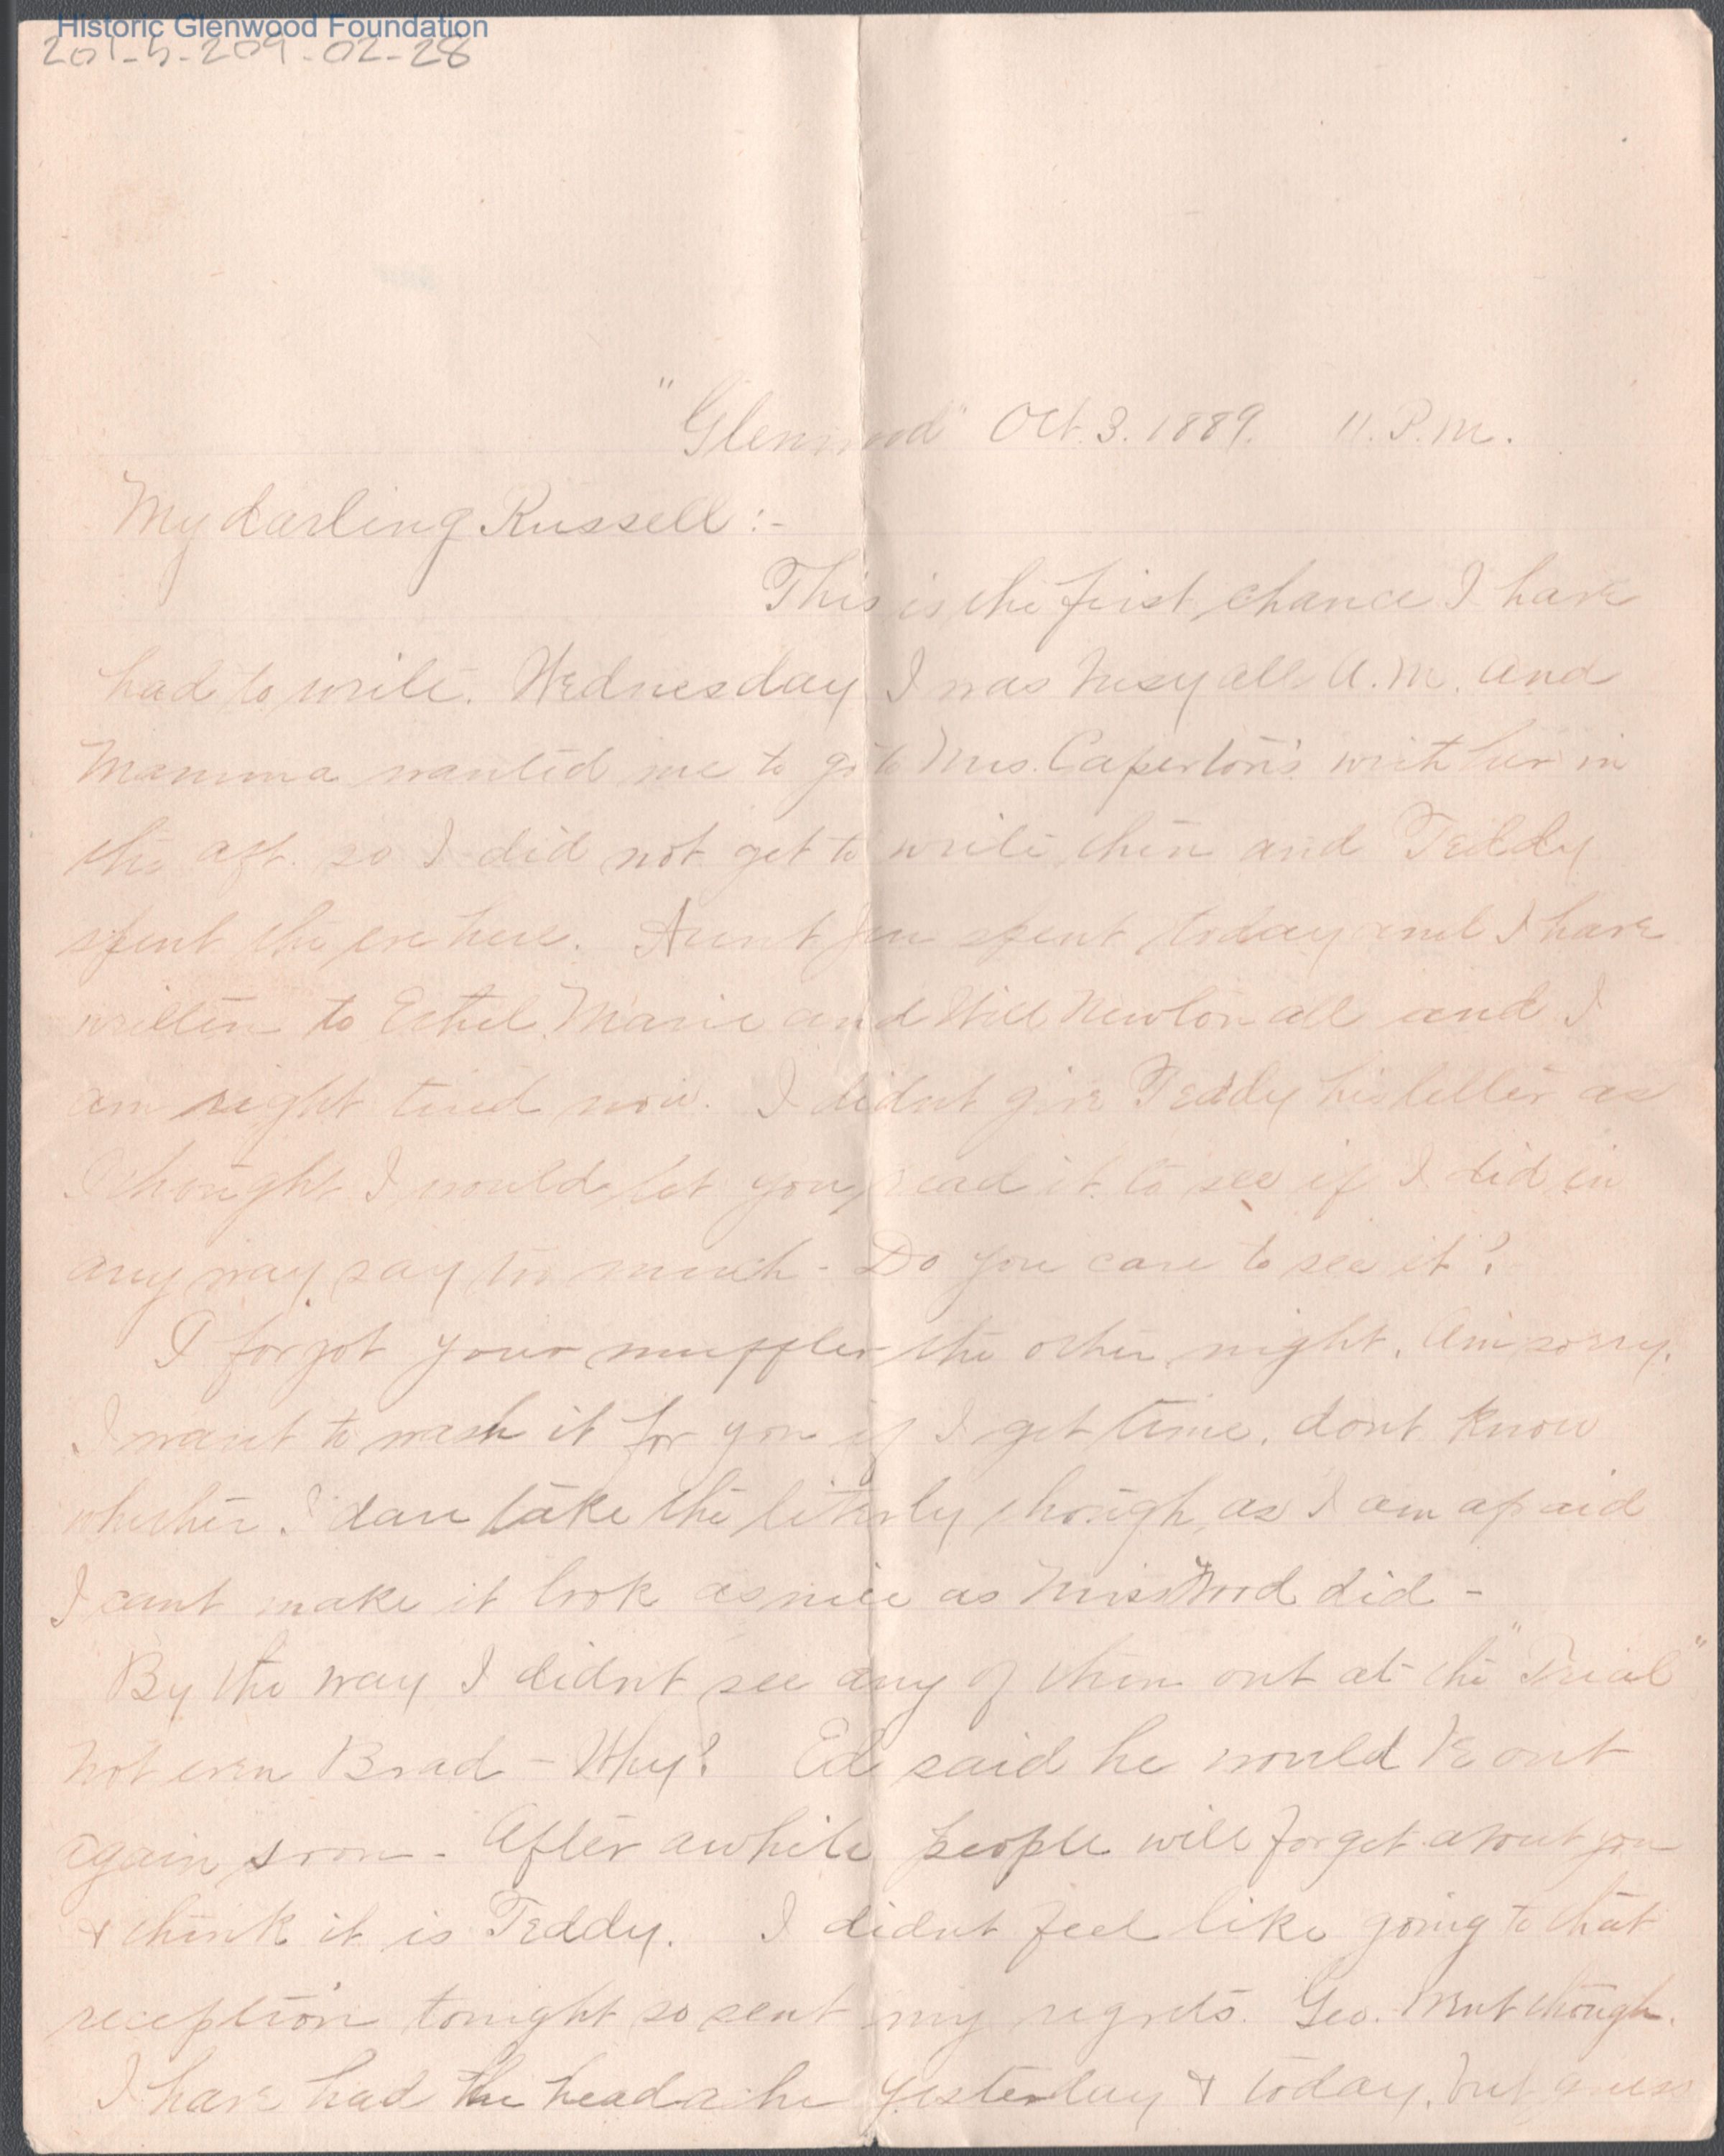 Historic Glenwood Foundation
201-5-209-02-28
"Glenwood" Oct. 3. 1889. 11. P.M.
My darling Russell :-
This is the first chance I have
had to write. Wednesday I was busy all A.M. and
Mamma wanted me to go to Mrs. Caperton's with her in
the aft. so I did not get to write then and Teddy
spent the eve here. Aunt Jen spent today and I have
written to Ethel, Marie and Will Newlon all and I
am right tired now. I didnt give Teddy his letter as
I thought I would let you read it to see if I did in
any way say too much - Do you care to see it?
I forgot your muffler the other night. Am sorry.
I want to wash it for you if I get time. dont know
whether I dare take the liberty though, as I am afraid
I cant make it look as nice as Miss Wood did -
By the way I didnt see any of them out at the "Trial"
not even Brad - Why? Ed said he would be out
again soon - After awhile people will forget about you
& think it is Teddy. I didnt feel like going to that
reception tonight so sent my regrets. Geo. went though.
I have had the headache yesterday & today, but guess